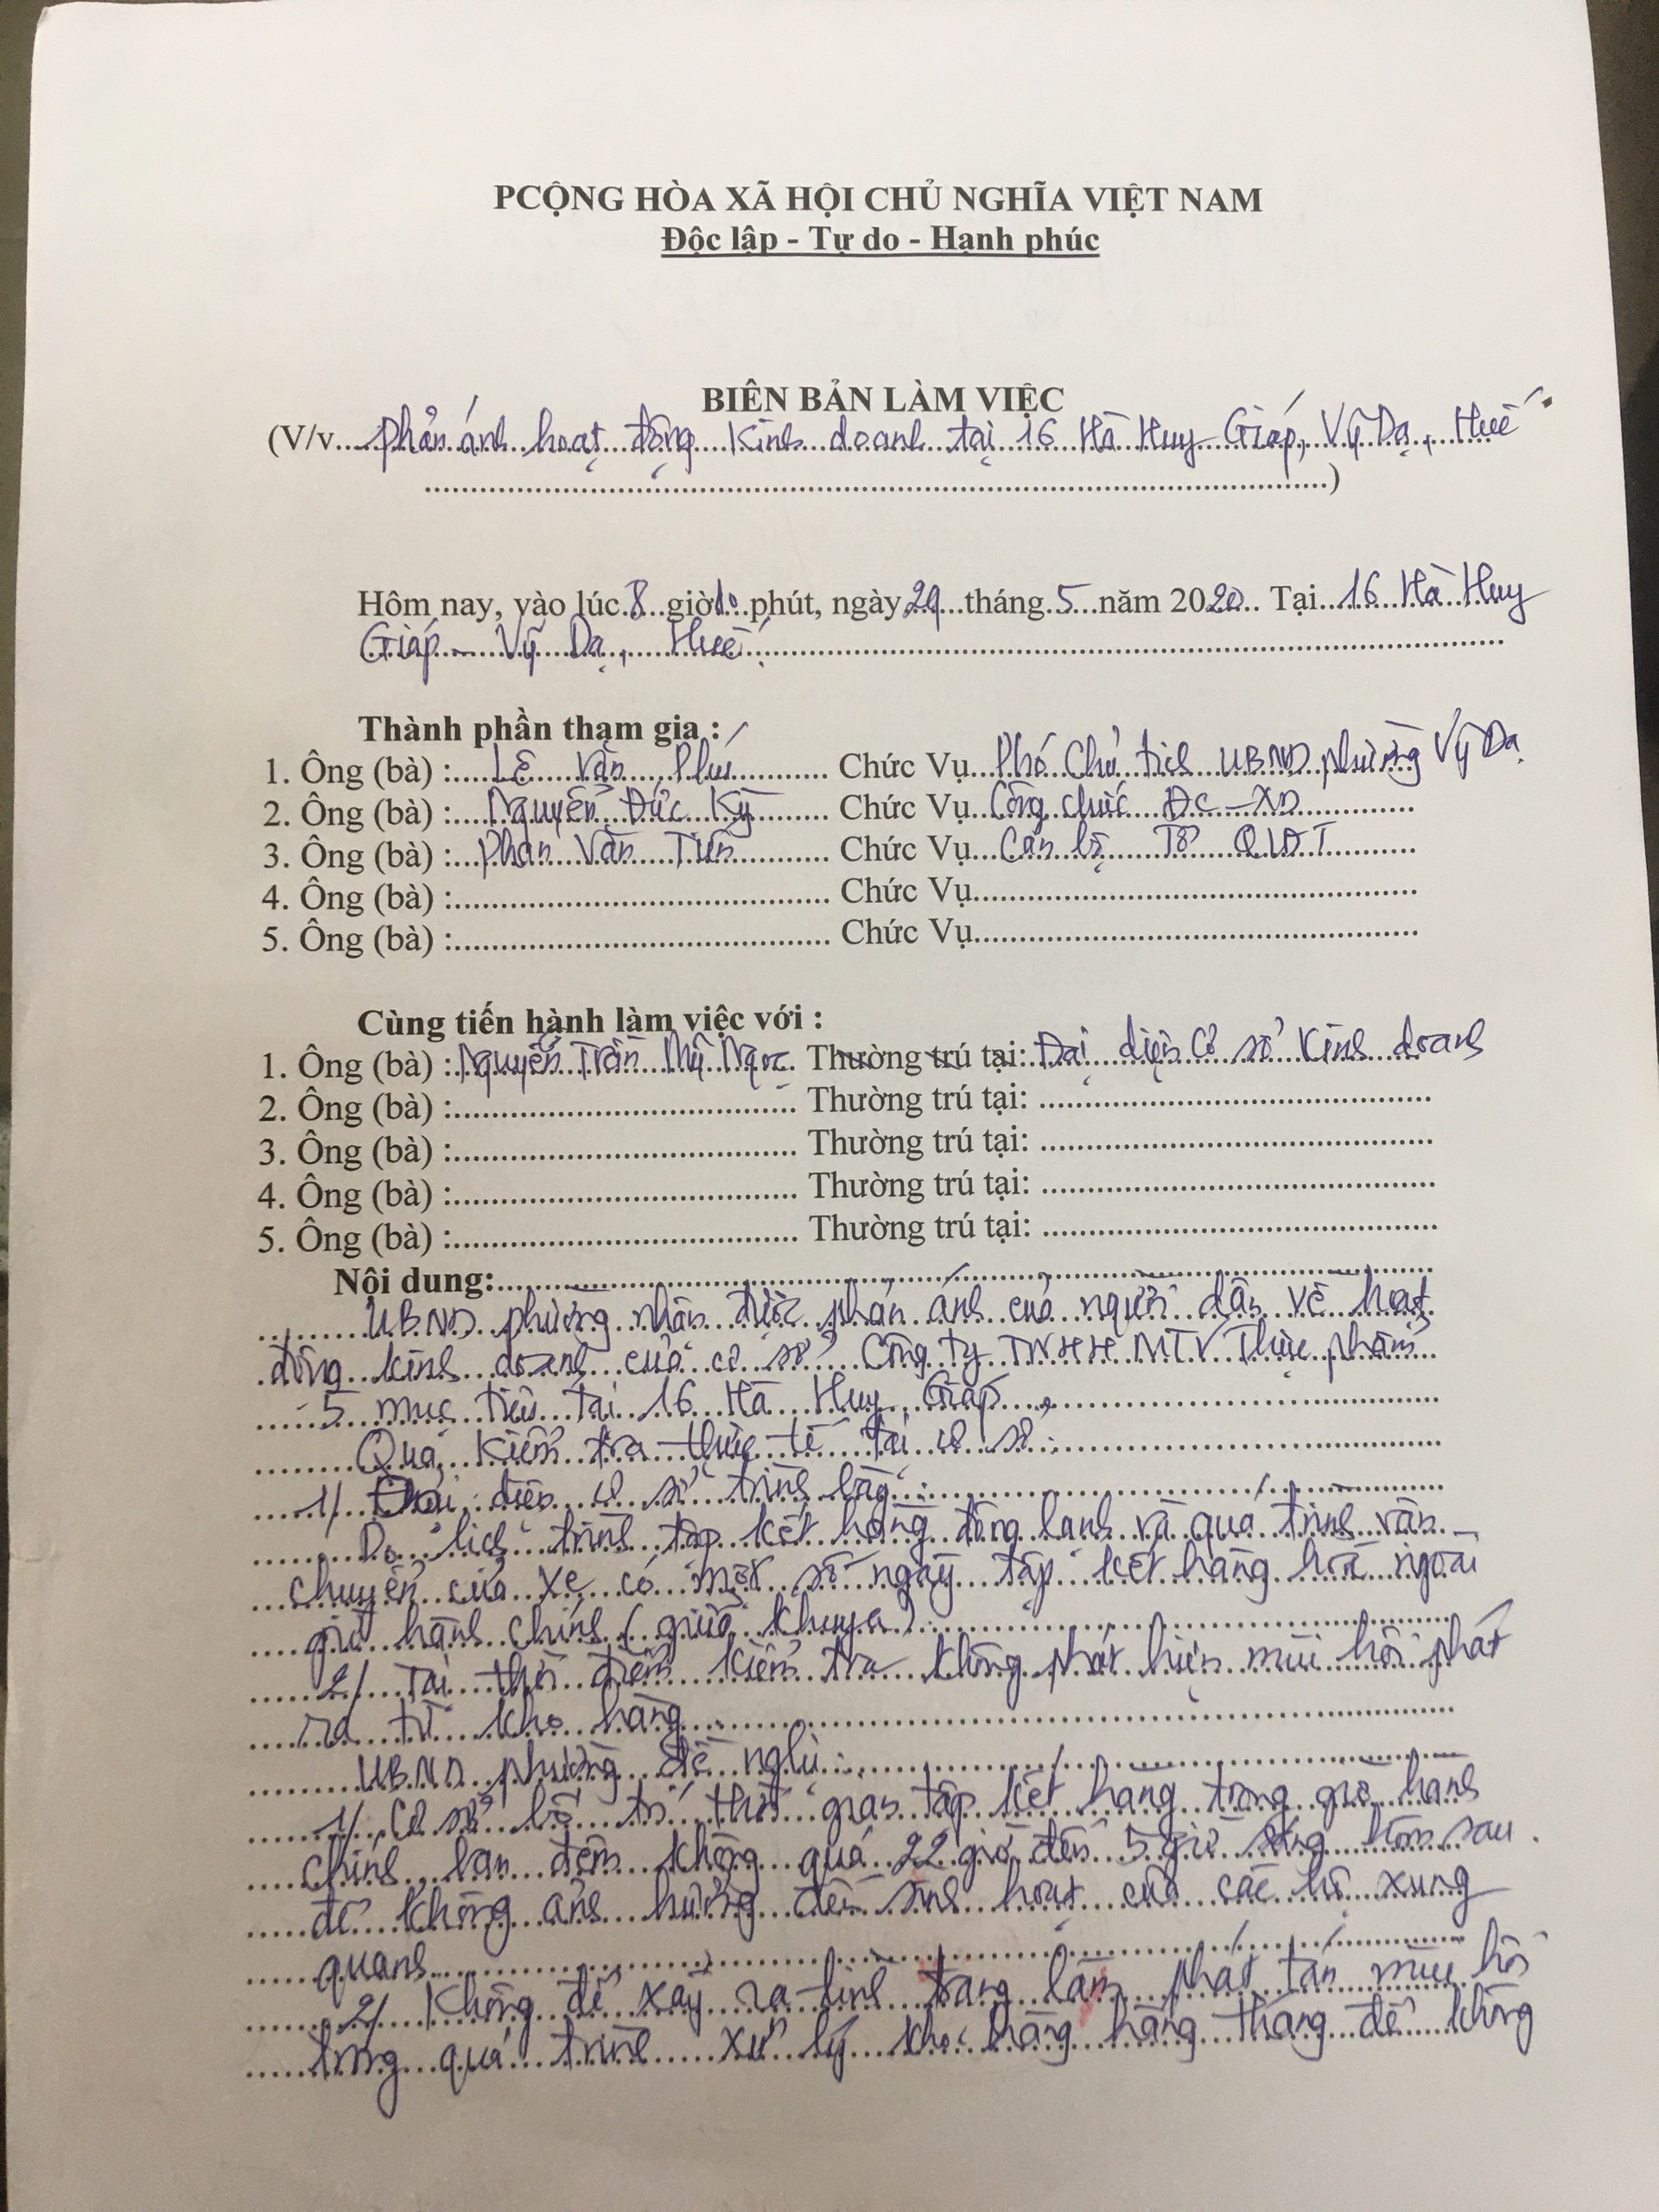 PCỘNG HÒA XÃ HỘI CHỦ NGHĨA VIỆT NAM
Độc lập - Tự do - Hạnh phúc
BIÊN BẢN LÀM VIỆC
(V/v... Phản ánh hoạt động kinh doanh tại 16 Hà Huy Giáp, Vỹ Dạ, Huế
...)
Hôm nay, vào lúc 8 giờ 10 phút, ngày 29 tháng 5 năm 2020. Tại 16 Hà Huy
Giáp - Vỹ Dạ, Huế
Thành phần tham gia :
1. Ông (bà) : Lê Văn Phú Chức Vụ Phó Chủ tịch UBND phường Vỹ Dạ
2. Ông (bà) : Nguyễn Đức Kỳ Chức Vụ Công chức ĐC-XD
3. Ông (bà) : Phan Văn Tiến Chức Vụ Cán bộ Tổ QLĐT
4. Ông (bà) : Chức Vụ
5. Ông (bà) : Chức Vụ
Cùng tiến hành làm việc với :
1. Ông (bà) : Nguyễn Trần Mỹ Ngọc Thường trú tại: Đại diện Cơ sở Kinh doanh
2. Ông (bà) : Thường trú tại:
3. Ông (bà) : Thường trú tại:
4. Ông (bà) : Thường trú tại:
5. Ông (bà) : Thường trú tại:
Nội dung:
UBND phường nhận được phản ánh của người dân về hoạt
động kinh doanh của cơ sở Công ty TNHH MTV Thực phẩm
5 mục tiêu tại 16 Hà Huy Giáp.
Qua kiểm tra thực tế tại cơ sở:
1/ Đại diện cơ sở trình bày:
Do lịch trình tập kết hàng đông lạnh và quá trình vận
chuyển của xe có một số ngày tập kết hàng hoá ngoài
giờ hành chính (giữa khuya).
2/ Tại thời điểm kiểm tra không phát hiện mùi hôi phát
ra từ kho hàng.
UBND phường đề nghị:
1/ Cơ sở bố trí thời gian tập kết hàng trong giờ hành
chính, ban đêm không quá 22 giờ đến 5 giờ sáng hôm sau.
để không ảnh hưởng đến sinh hoạt của các hộ xung
quanh.
2/ Không để xảy ra tình trạng làm phát tán mùi hôi
trong quá trình xử lý kho hàng hàng tháng để không